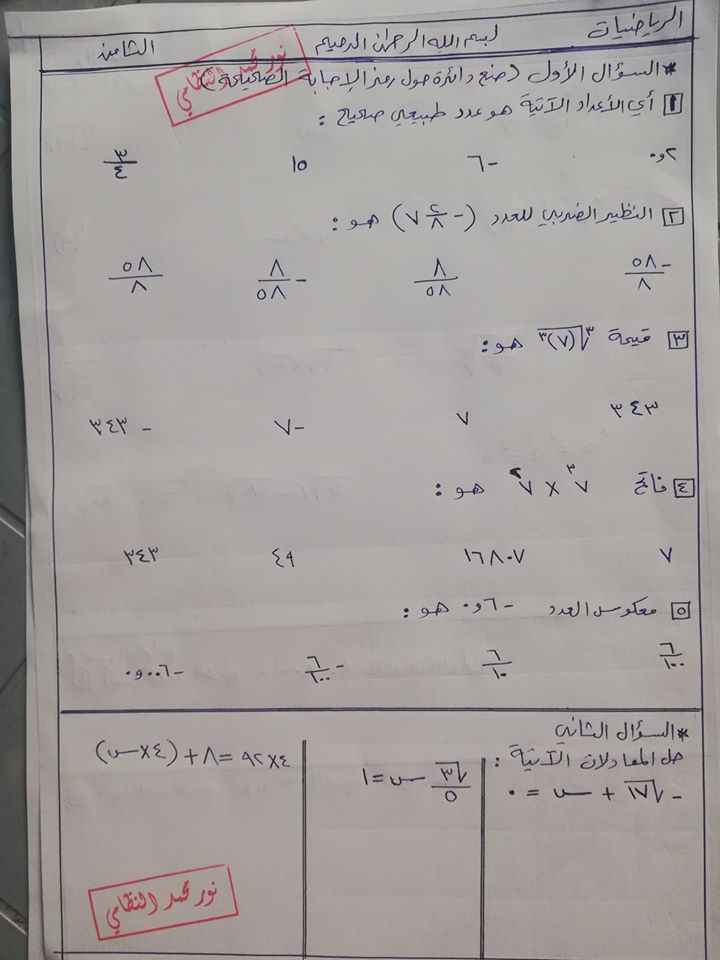 الرياضيات لبسم الله الرحمن الرحيم الثامن
* السؤال الأول (ضع دائرة حول رمز الإجابة الصحيحة)
نور محمد النظامي
١ أي الأعداد الآتية هو عدد طبيعي صحيح :
٢و٠ -٦ ١٥ ٣/٤
٢ النظير الضربي للعدد (-٢/٨ ٧) هو :
-٥٨/٨ ٨/٥٨ -٨/٥٨ ٥٨/٨
٣ قيمة ³√(٧)³ هو :
٣٤٣ ٧ -٧ -٣٤٣
٤ ناتج ٧³ × ٧² هو :
٧ ١٦٨٠٧ ٤٩ ٣٤٣
٥ معكوس العدد -٦و٠ هو :
٦/١٠٠ ٦/١٠ -٦/١٠٠ -٠٠٦و٠
* السؤال الثاني
حل المعادلات الآتية :
-√١٧ + س = ٠
√٣/٥ س = ١
٤×٩٢ = ٨ + (٤×س)
نور محمد النظامي